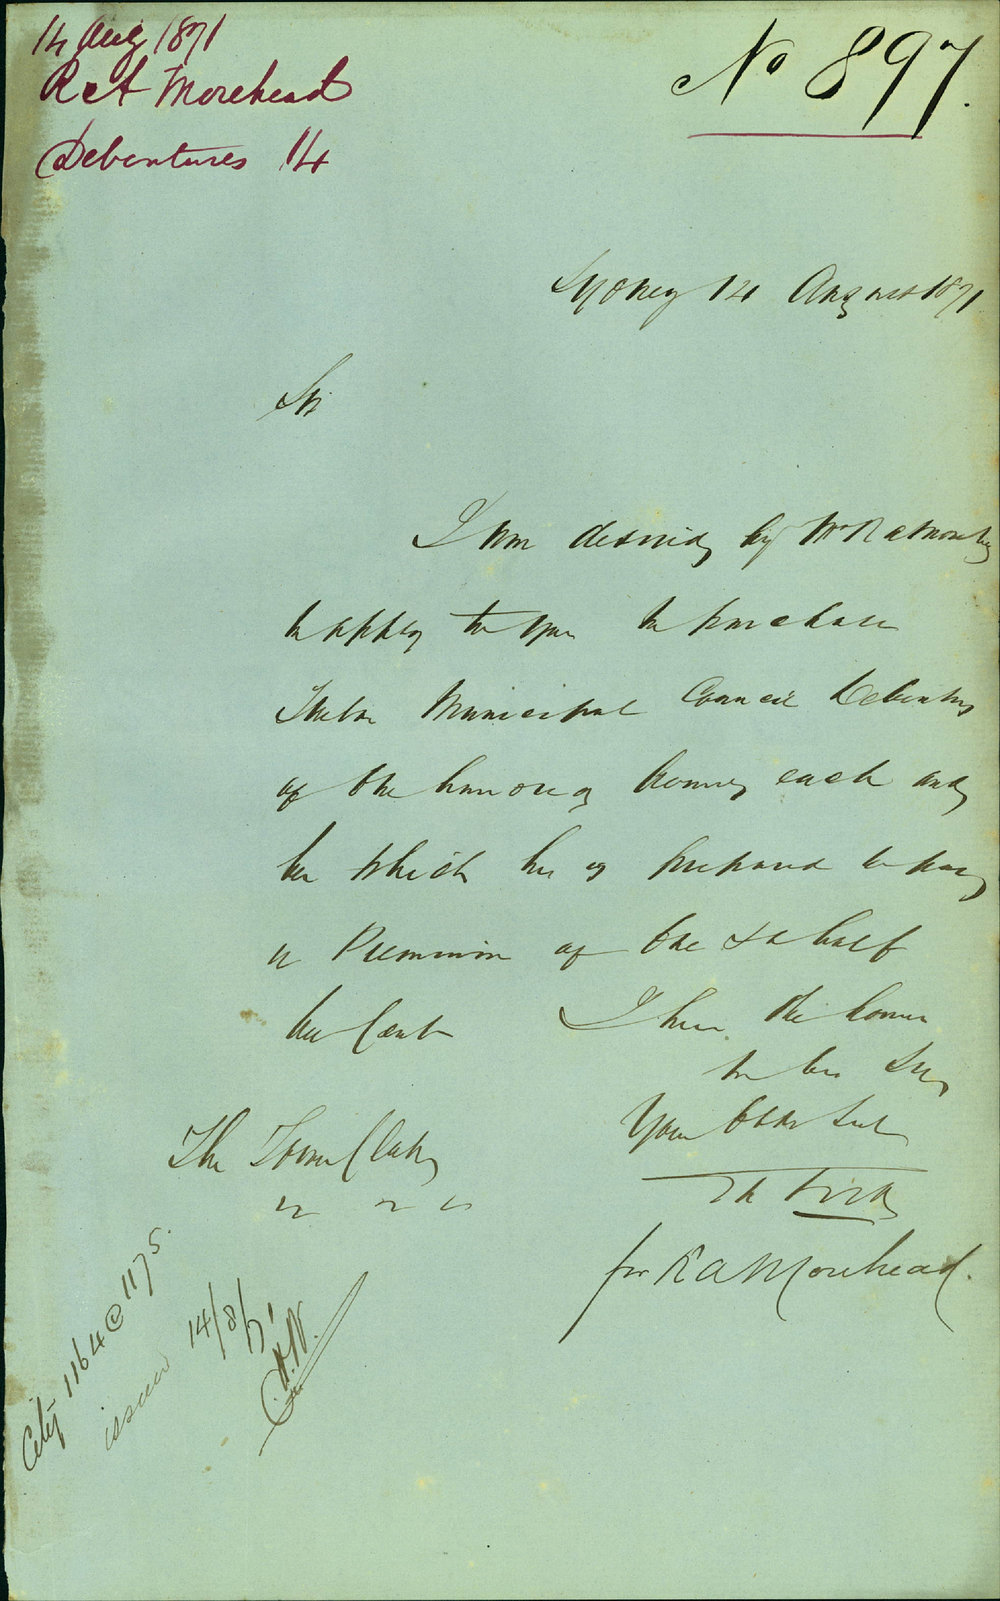 14 Aug 1871
R A Morehead
Debentures 14
No 897.
Sydney 14 August 1871
Sir
I am desired by Mr R A Morehead
to apply to you to purchase
Municipal Council Debentures
of One hundred Pounds each and
for which he is prepared to pay
a Premium of One & a half
per Cent I have the honor
to be Sir
Your Obdt Servt
for R A Morehead.
The Town Clerk
City 1164 @ 1175.
issued 14/8/71